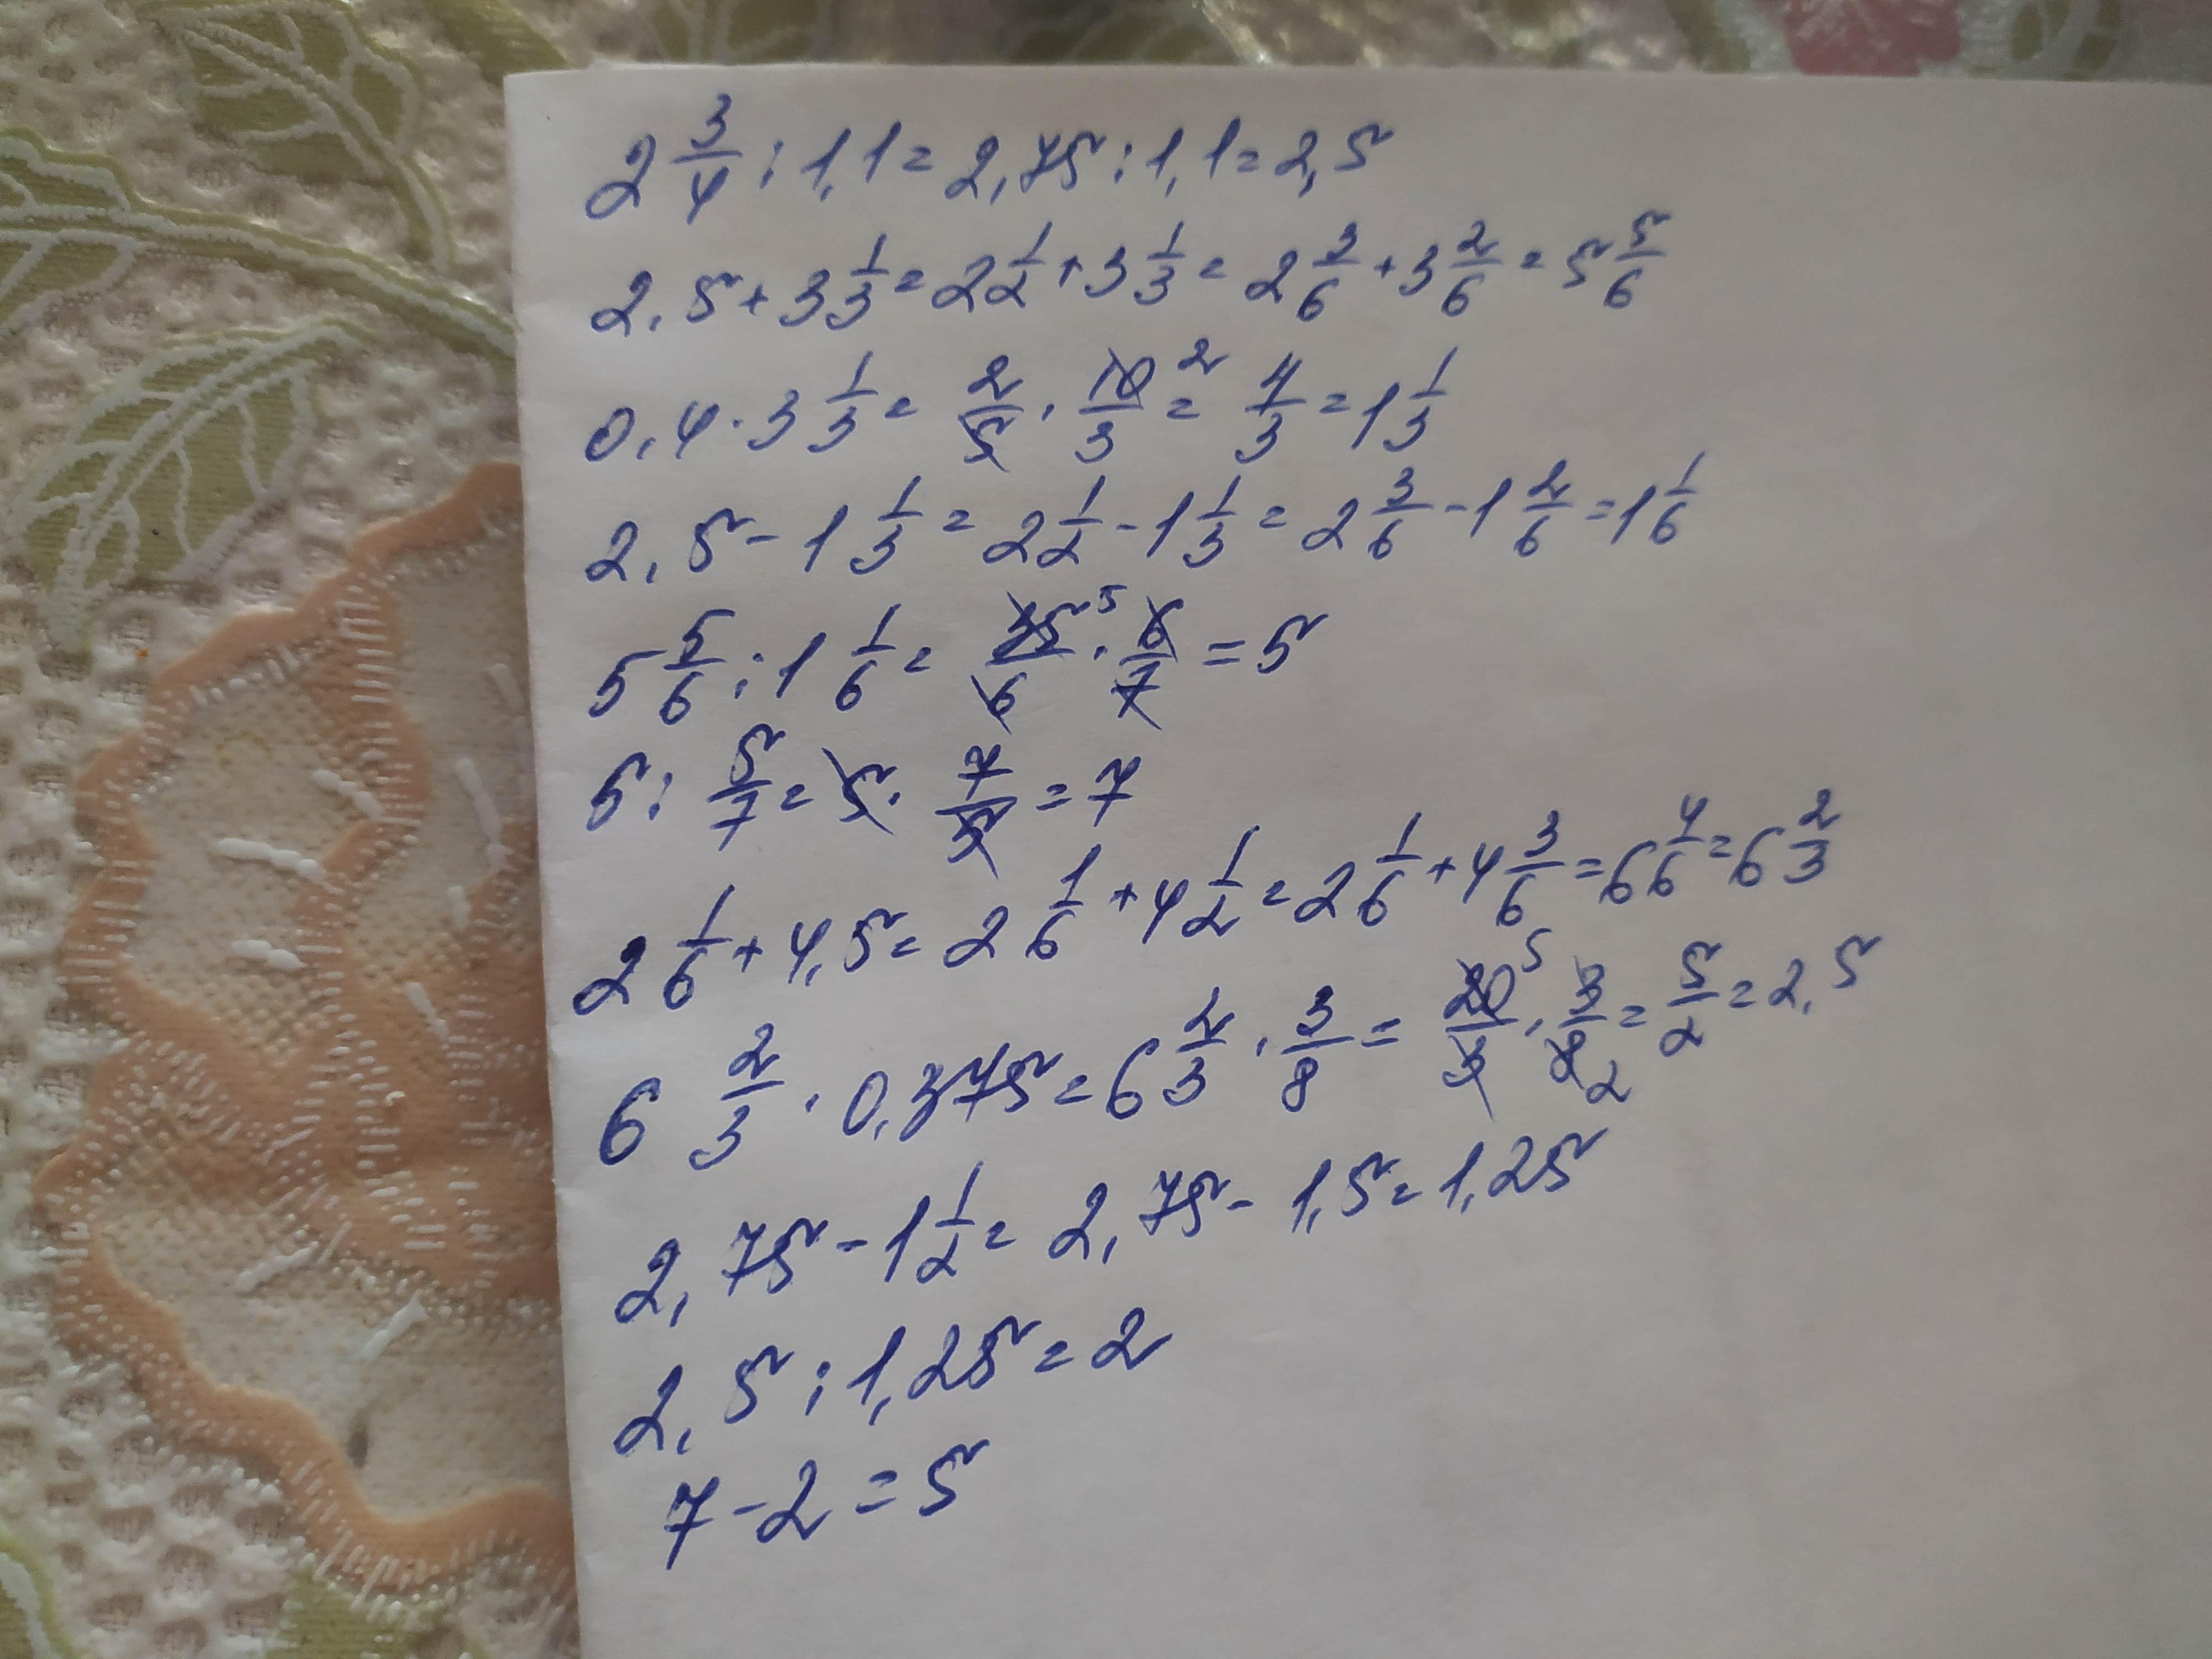 2 3/4 : 1,1 = 2,75 : 1,1 = 2,5
2,5 + 3 1/3 = 2 1/2 + 3 1/3 = 2 3/6 + 3 2/6 = 5 5/6
0,4 · 3 1/3 = 2/5 · 10/3 2 = 4/3 = 1 1/3
2,5 - 1 1/3 = 2 1/2 - 1 1/3 = 2 3/6 - 1 2/6 = 1 1/6
5 5/6 : 1 1/6 = 35/6 5 · 6/7 = 5
5 : 5/7 = 5 · 7/5 = 7
2 1/6 + 4,5 = 2 1/6 + 4 1/2 = 2 1/6 + 4 3/6 = 6 4/6 = 6 2/3
6 2/3 · 0,375 = 6 2/3 · 3/8 = 20/3 5 · 3/8 2 = 5/2 = 2,5
2,75 - 1 1/2 = 2,75 - 1,5 = 1,25
2,5 : 1,25 = 2
7 - 2 = 5